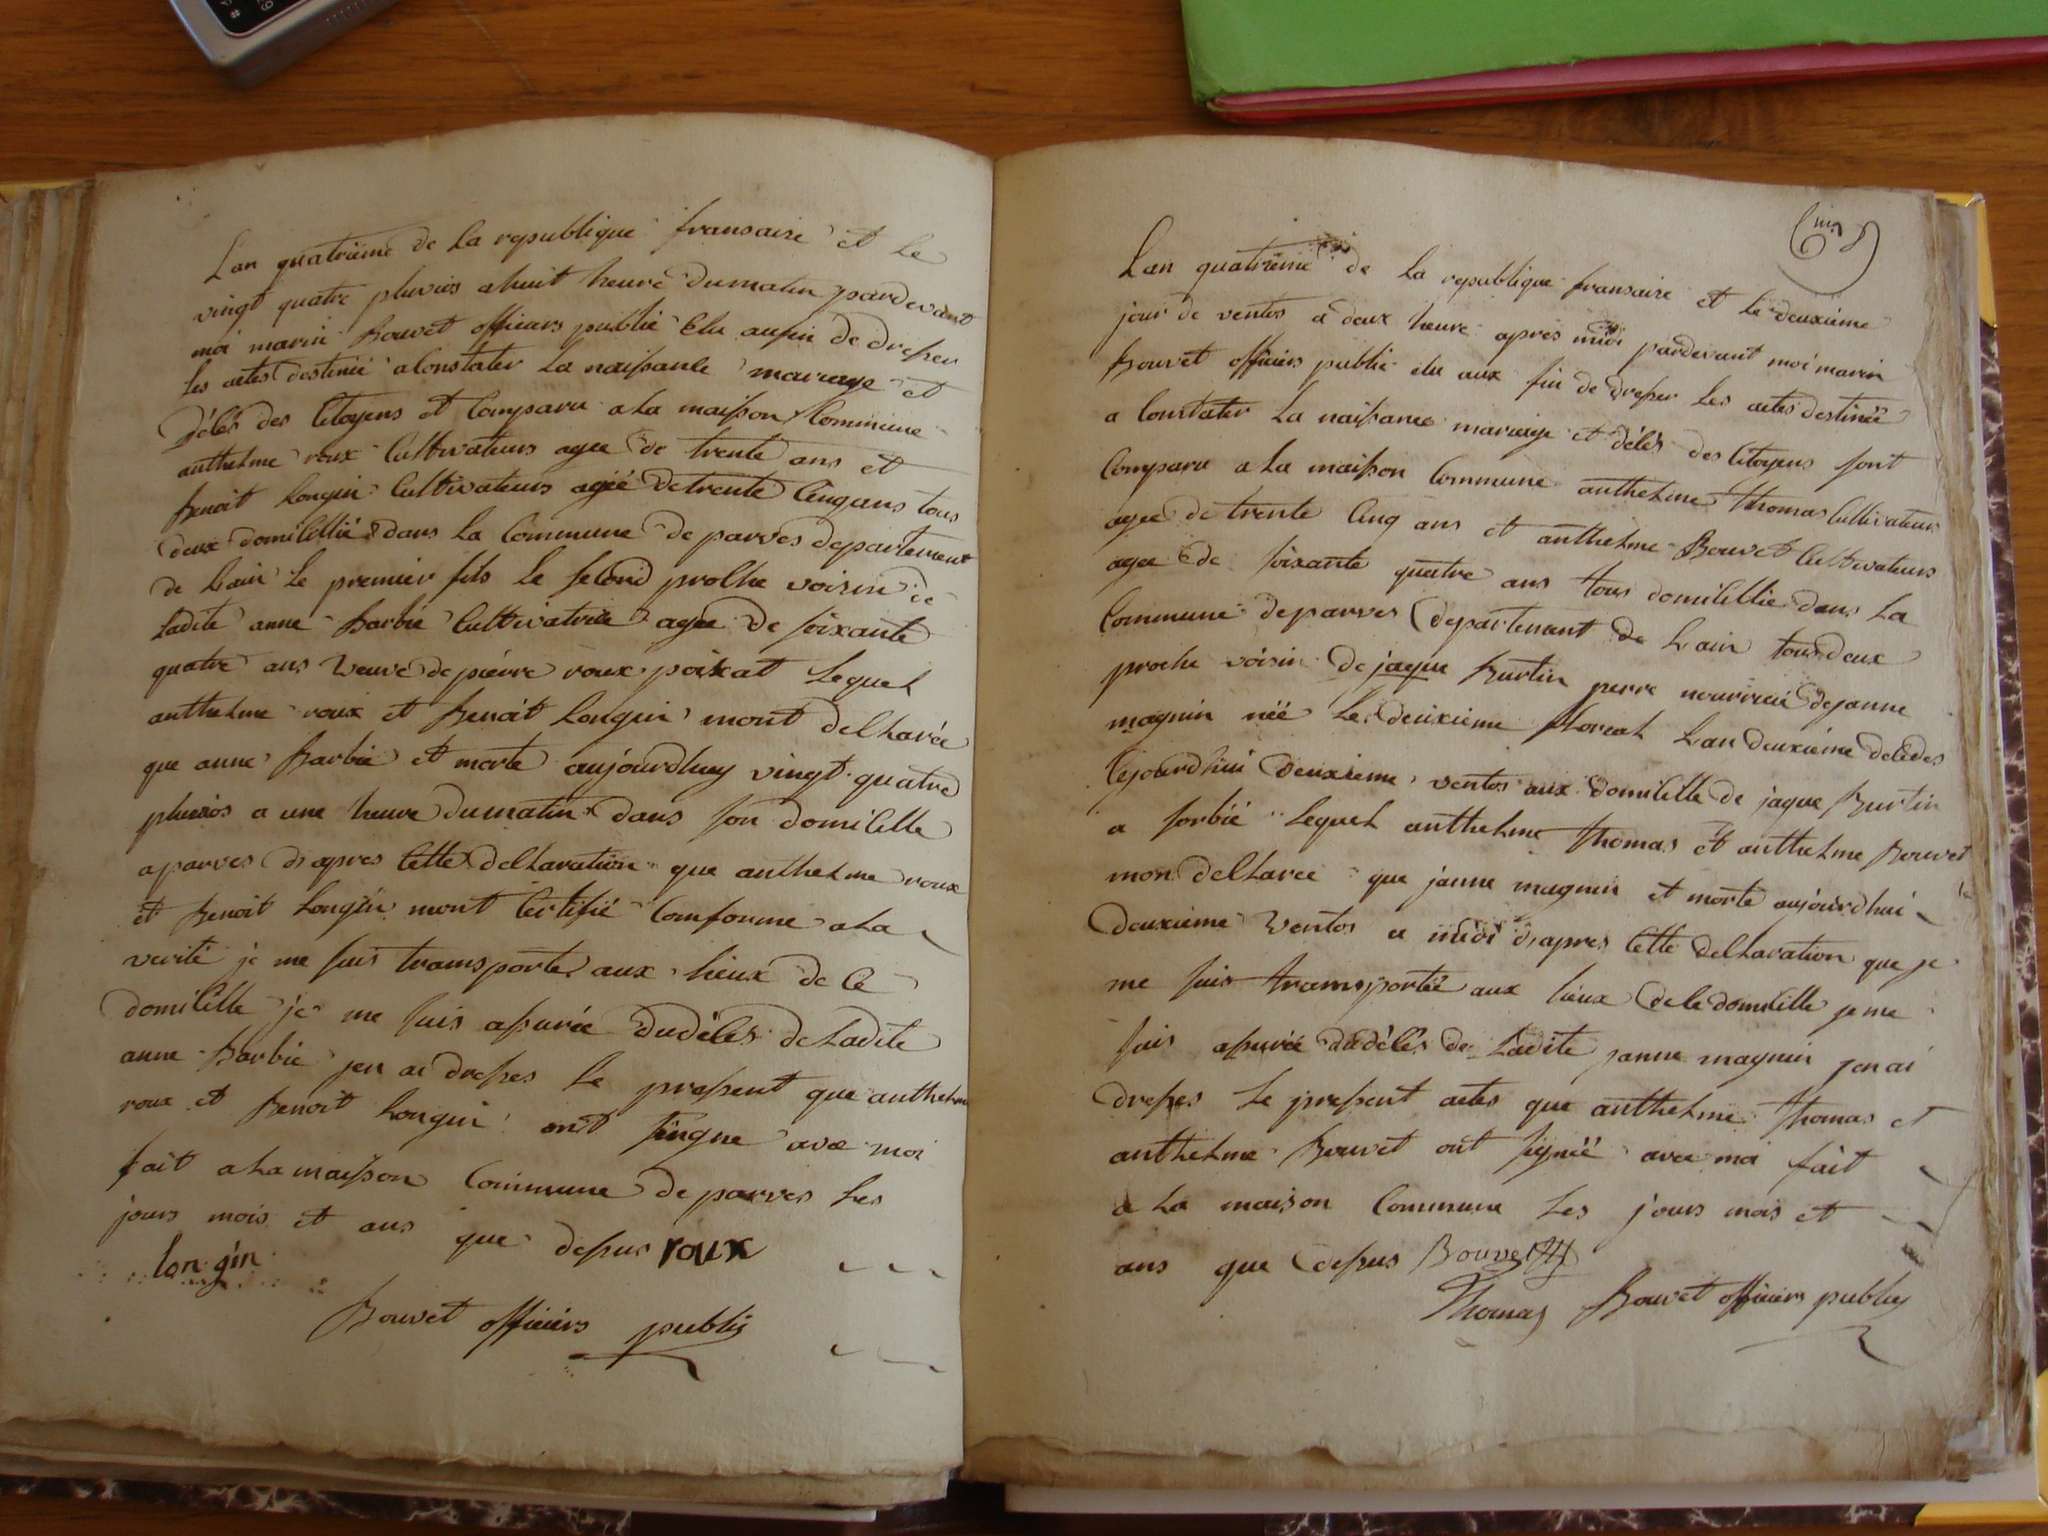 Lan quatrieme de La republique fransaise et Le
vingt quatre pluvios a huit heure dumatin pardevant
moi marin Bouvet officiers public Elu aufin de dresser
les actes destinée a Constater La naissance mariage et
délés des Citoyens et Comparu a La maisson Commune
anthelme roux Cultivateurs agee de trente ans et
Benoit Longin Cultivateurs agée de trente Cinq ans tous
deux domicillié dans La Commune de parves departement
de Lain Le premier fils Le second proche voisin de
Ladite anne Barbié Cultivatrice agee de soixante
quatre ans veuve de pierre roux poixat Lequel
anthelme roux et Benoit Longin mont delharée
que anne Barbié et morte aujourdhuy vingt quatre
pluvios a une heure dumatin dans son domicille
a parves dapres Cette delharation que anthelme roux
et Benoit Longin mont Certifié Comforme a La
verité je me suis transporté aux Lieux de Ce
domicille je me suis assurée dudélés de Ladite
anne Barbié jen ai dresses Le pressent que anthelme
roux et Benoit Longin ont singne avec moi
fait a La maisson Commune de parves Les
jours mois et ans que dessus roux
longin
Bouvet officiers public
Lan quatrieme de La republique fransaise et Le deuxieme
jour de ventos a deux heure apres midi pardevant moi marin
Bouvet officiers public elu aux fin de dresser Les actes destinée
a Constater La naissance mariage et délés des Citoyens sont
Comparu a La maisson Commune anthelme Thomas Cultivateurs
agee de trente Cinq ans et anthelme Bouvet Cultivateurs
agee de soixante quatre ans tous domicillie dans La
Commune de parves departement de Lain tous deux
proche voisin de jaque Burtin perre nourricié de janne
magnin néé Le deuxieme floreal Lan deuxieme
Cejourdhui deuxieme ventos aux domicille de jaque Burtin
a sorbié Lequel anthelme Thomas et anthelme Bouvet
mon delharee que janne magnin et morte aujourdhui
deuxieme ventos a midi dapres Cette delharation que je
me suis transportée aux Lieux de Ce domicille je me
suis assurée dudélés de Ladite janne magnin jen ai
dresses Le pressent actes que anthelme Thomas et
anthelme Bouvet ont signéé avec moi fait
a La maison Commune Les jours mois et
ans que dessus Bouvet
Thomas Bouvet officiers public